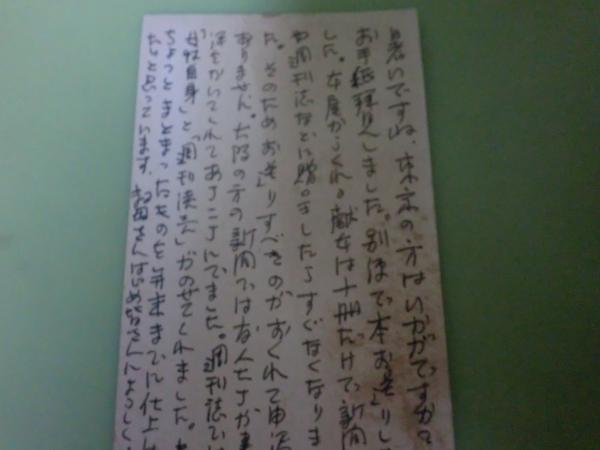 暑いですね、東京の方はいかがですか。
お手紙拝見しました。別便で本お送りし
した。本屋からくれる献本は十冊だけで、新聞
や週刊誌などに贈呈したらすぐなくなりま
た。そのためお送りすべきのがおくれて申
ありません。大阪の方の新聞では友人たちが書
をかいてくれてあちこちにでました。週刊誌では
「女性自身」と「週刊読売」がのせてくれました。
ちょっとまとまったものを年末までに仕上げ
たいと思っています。さんはじめ皆さんによろしく